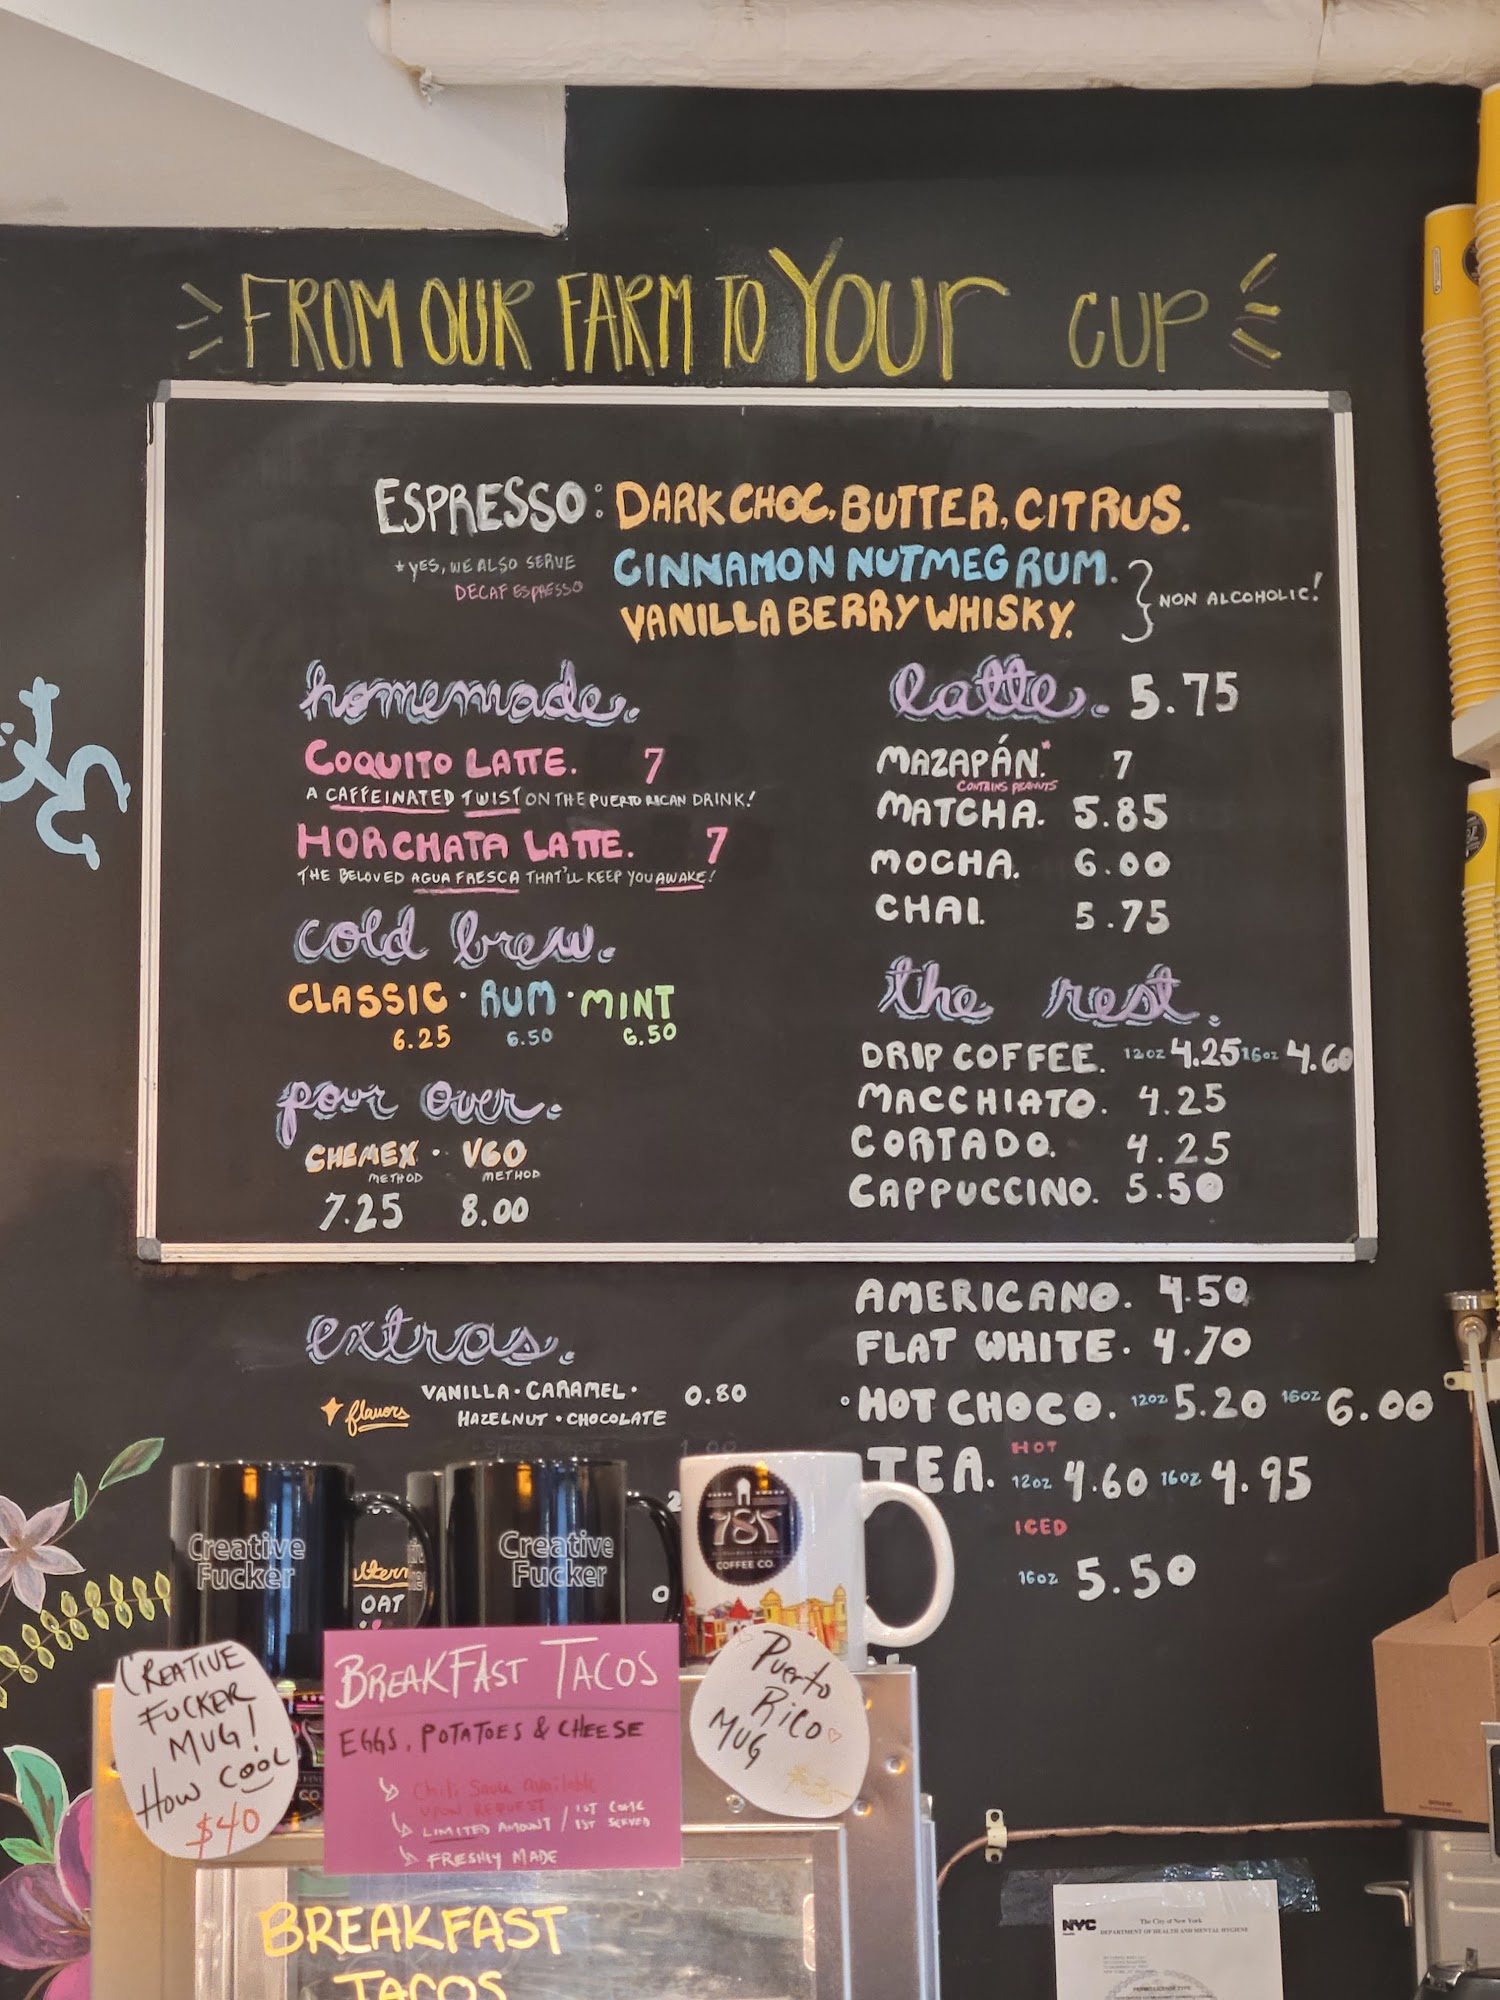 FROM OUR FARM TO YOUR CUP
ESPRESSO: DARK CHOC, BUTTER, CITRUS.
*YES, WE ALSO SERVE
DECAF ESPRESSO
CINNAMON NUTMEG RUM.
VANILLA BERRY WHISKY.
NON ALCOHOLIC!
homemade.
COQUITO LATTE. 7
A CAFFEINATED TWIST ON THE PUERTO RICAN DRINK!
HORCHATA LATTE. 7
THE BELOVED AGUA FRESCA THAT'LL KEEP YOU AWAKE!
cold brew.
CLASSIC · RUM · MINT
6.25 6.50 6.50
pour over.
CHEMEX · V60
METHOD METHOD
7.25 8.00
latte. 5.75
MAZAPÁN.* 7
CONTAINS PEANUTS
MATCHA. 5.85
MOCHA. 6.00
CHAI. 5.75
the rest.
DRIP COFFEE. 12oz 4.25 16oz 4.60
MACCHIATO. 4.25
CORTADO. 4.25
CAPPUCCINO. 5.50
AMERICANO. 4.50
FLAT WHITE. 4.70
HOT CHOCO. 12oz 5.20 16oz 6.00
TEA. HOT
12oz 4.60 16oz 4.95
ICED
16oz 5.50
extras.
flavors
VANILLA · CARAMEL · 0.80
HAZELNUT · CHOCOLATE
1.00
OAT
Creative
Fucker
Creative
Fucker
787
COFFEE CO.
CREATIVE
FUCKER
MUG!
HOW COOL
$40
BREAKFAST TACOS
EGGS, POTATOES & CHEESE
Chili Sauce available
UPON REQUEST
LIMITED AMOUNT / 1ST COME
1ST SERVED
FRESHLY MADE
Puerto
Rico
MUG
BREAKFAST
TACOS
NYC
The City of New York
DEPARTMENT OF HEALTH AND MENTAL HYGIENE